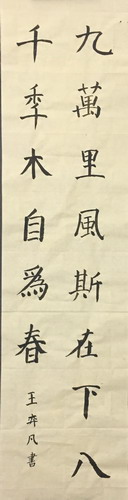 九萬里風斯在下八
千秊木自爲春
王弈凡書